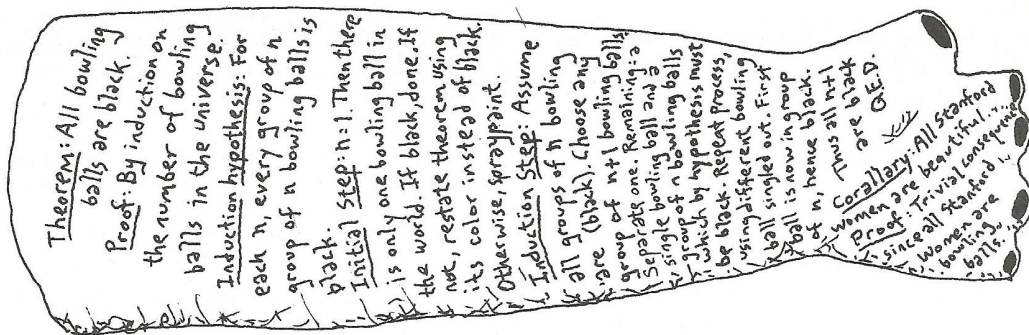 Theorem: All bowling
balls are black.
Proof: By induction on
the number of bowling
balls in the universe.
Induction hypothesis: For
each n, every group of n
group of n bowling balls is
black.
Initial Step: n=1. Then there
is only one bowling ball in
the world. If black, done. If
not, restate theorem using
its color instead of black.
Otherwise, spraypaint.
Induction Step: Assume
all groups of n bowling
are (black). Choose any
group of n+1 bowling balls.
Separate one. Remaining: a
single bowling ball and a
group of n bowling balls
which by hypothesis must
be black. Repeat Process,
using different bowling
ball singled out. First
ball is now in group
of n, hence black.
Thus all n+1
are black
Q.E.D.
Corallary: All Stanford
women are beautiful.
Proof: Trivial consequence
since all Stanford
women are
bowling
balls.